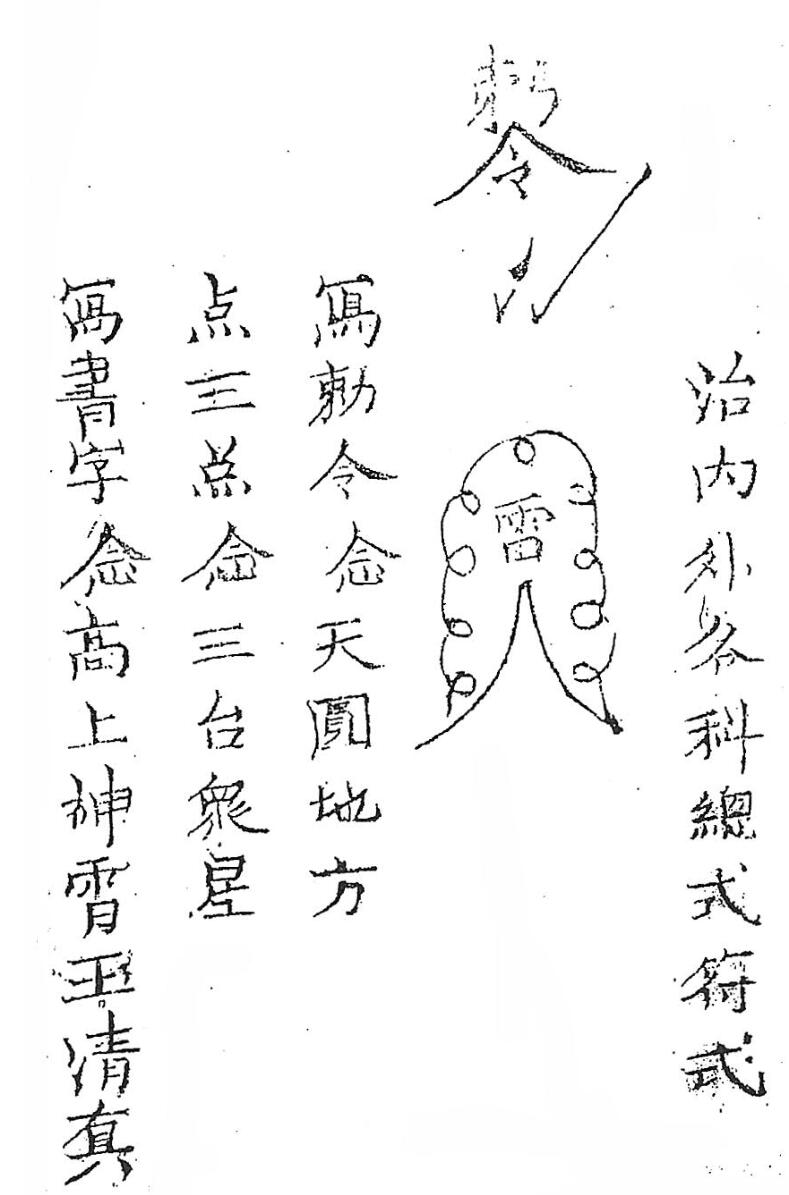 治內外各科總式符式
勅令
雷
寫勅令念天圓地方
点三点念三台衆星
寫書字念高上神霄玉清真